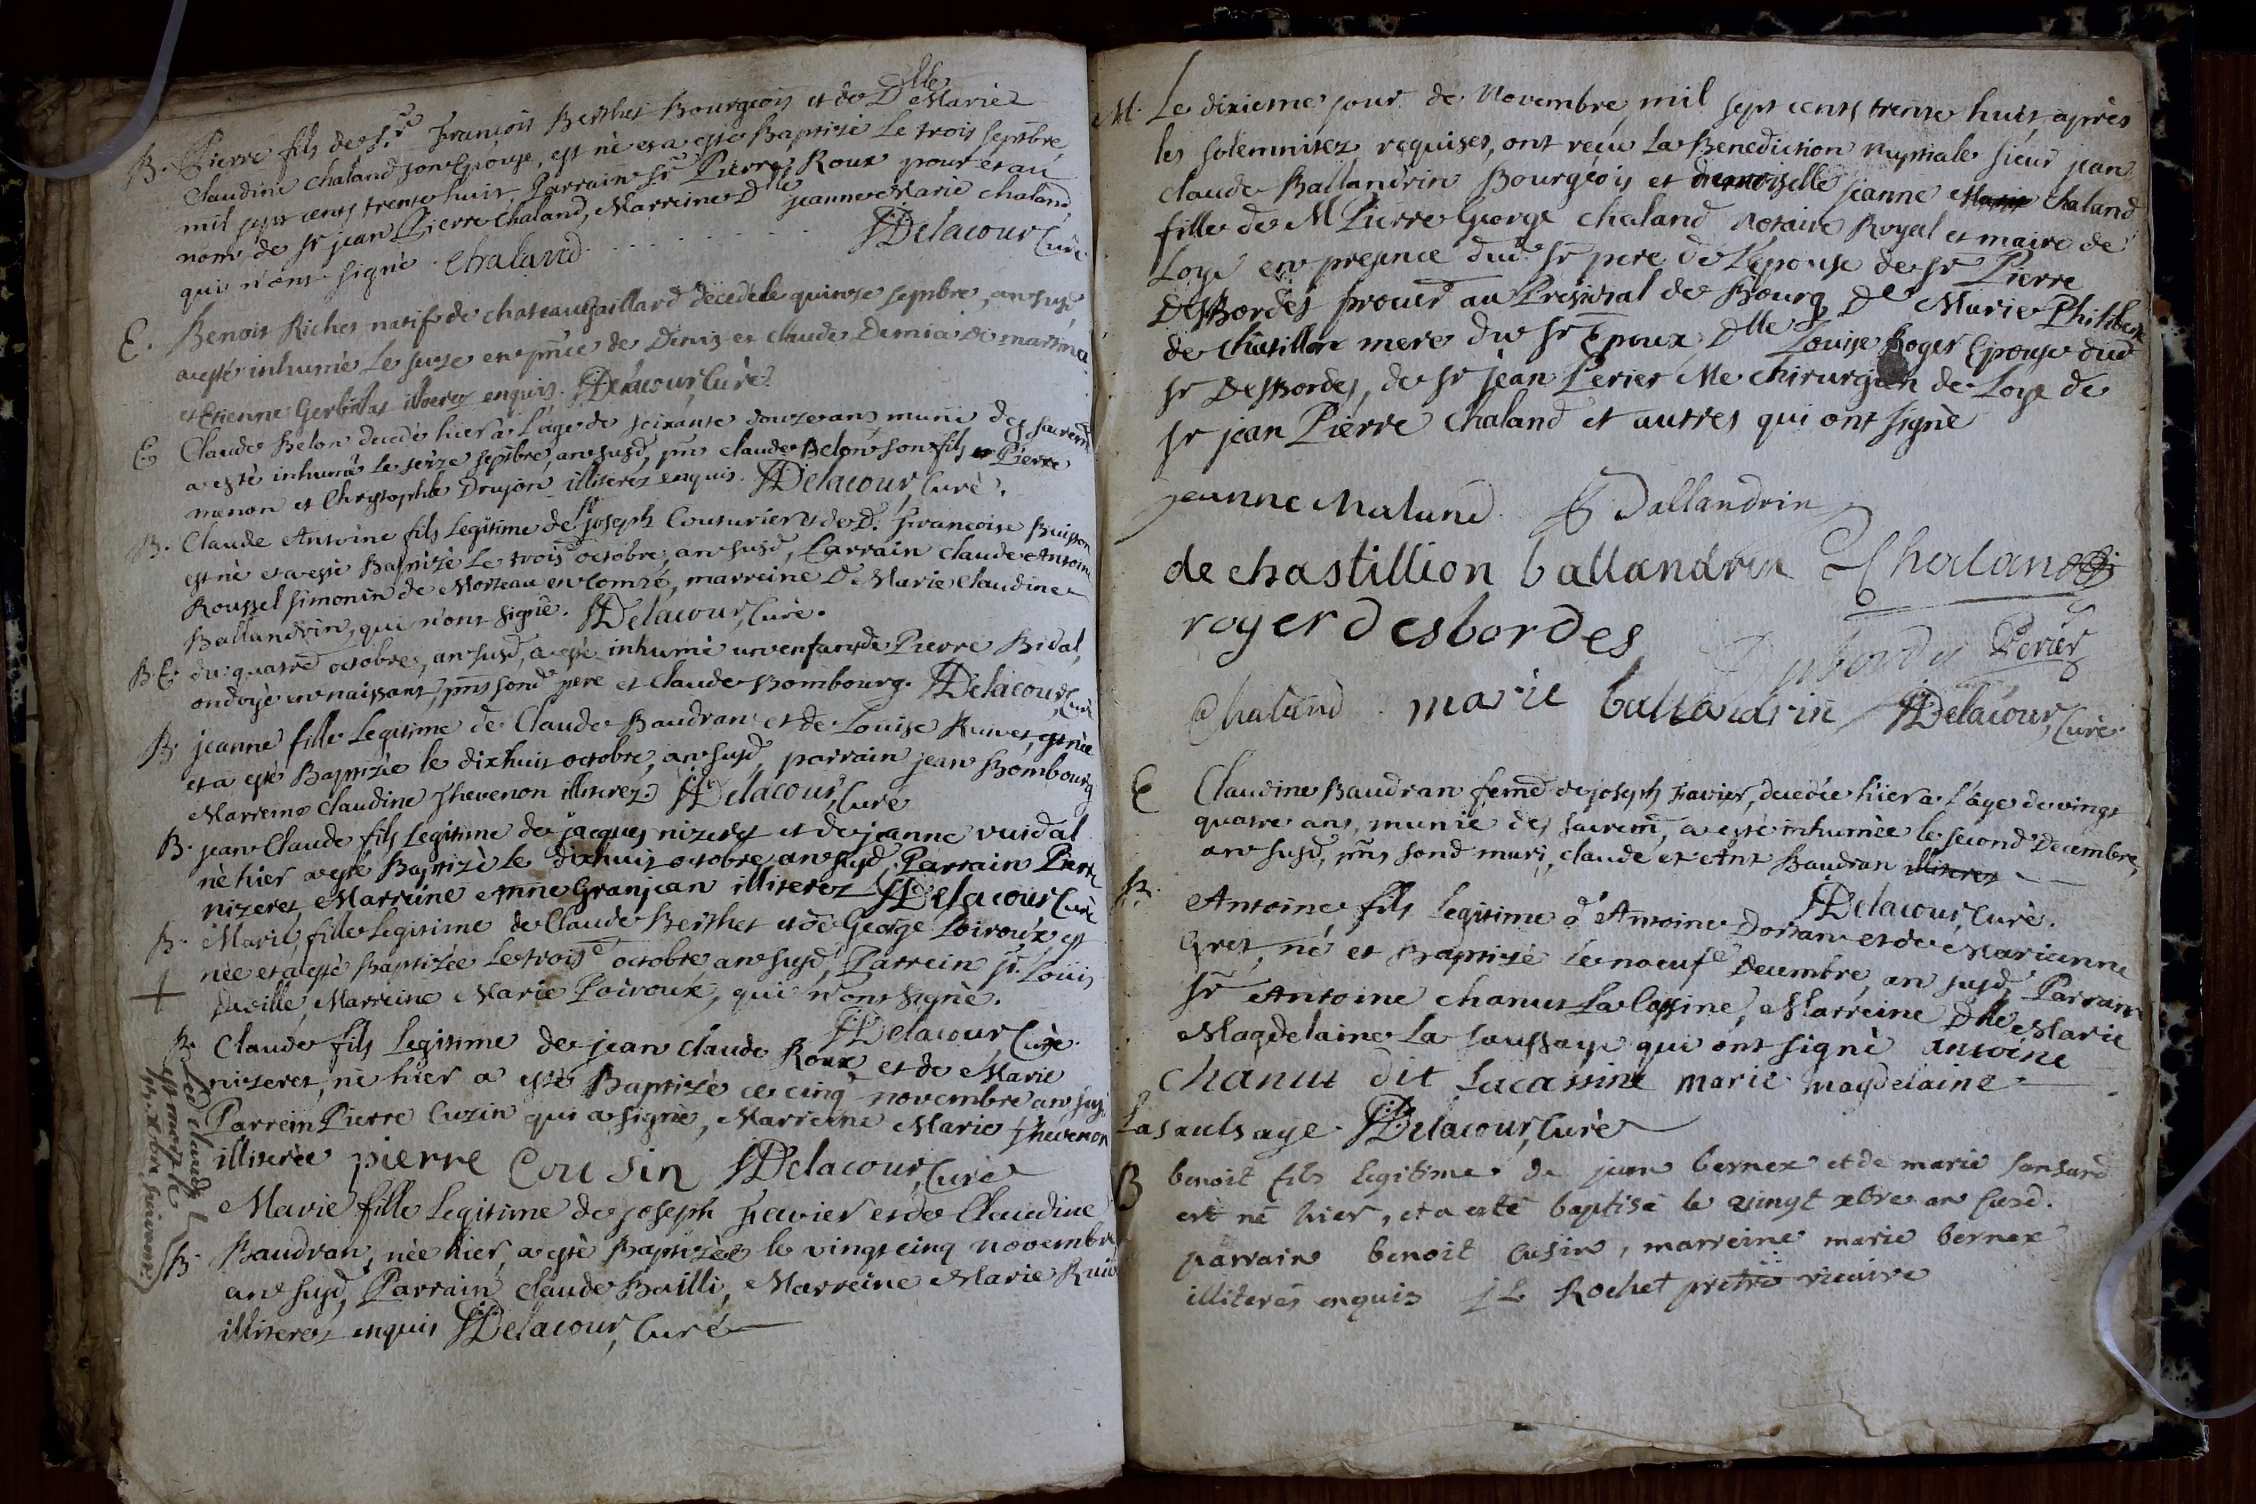 B. Pierre fils de Sr. François Berthet Bourgeois et de Dlle Marie
Claudine Chaland son Epouse, est nè et a esté Baptisé Le trois septbre,
mil sept cents trente huit, Parrain Sr Pierre Roux pour et au
nom de Sr jean Pierre Chaland, Marreine Dlle jeanne Marie Chaland,
qui n'ont signé. Chaland. Delacour, Curé
E. Benoit Richet natif de Chasteaugaillard décédé le quinze septbre, an susd
a esté inhumé Le seize en pnce de Diniz et Claude Demia de
et Etienne illiterez enquis. Delacour, Curé.
E Claude Belon decedé hier a l'âge de soixante douze ans, muni des sacremts
a esté inhumé Le seize septbre, an susd, pns Claude Belon son fils et Pierre
menon et Chrystophle Drujon illiterez enquis. Delacour, Curé.
B. Claude Antoine fils Legitime de Sr joseph Couturier et de D. Françoise Buisson
est nè et a esté Baptizé Le trois octobre, an susd, Parrain Claude Antoine
Roussel simonin de Morteau en Comté, marreine D. Marie Claudine
Ballandrin, qui n'ont signé. Delacour, Curé.
B.E. du quatre octobre, an susd, a esté inhumé un enfant de Pierre Bidal,
ondoyé en naissant, pns sond pere et Claude Bombourg. Delacour, Curé
B. jeanne fille Legitime de Claude Baudran et de Louise Ruivet, est née
et a esté Baptizée le dixhuit octobre, an susd, parrain jean Bombourg
Marreine Claudine Thevenon illiterez. Delacour, Curé
B. jean Claude fils Legitime de jacques nizeret et de jeanne vuidal
né hier a esté Baptizé le dixhuit octobre an susd, Parrain Pierre
nizeret, Marreine Anne Granjean illiterez Delacour Curé
B. Marie, fille Legitime de Claude Berthet et de George Poiroux, est
née et a esté Baptizée Le trois octobre, an susd, Parrein Sr. Loüis
Duville, Marreine Marie Poiroux, qui n'ont signé.
Delacour, Curé
B. Claude fils Legitime de jean Claude Roux et de Marie
nizeret, né hier a esté Baptizé ce cinq novembre an susd,
Parrein Pierre Cuzin qui a signé, Marreine Marie Thevenon
illiterée pierre Cousin Delacour, Curé
Led Claude
est mort le
xbre suivant
Marie fille Legitime de joseph Favier et de Claudine
B. Baudran, née hier, a esté Baptizée le vingt cinq novembre
an susd, Parrain Claude Bailli, Marreine Marie
illiterez enquis Delacour, Curé
M. Le dixieme jour de Novembre, mil sept cents trente huit, après
les solemnitez requises, ont reçu La Benediction nuptiale sieur jean
Claude Ballandrin Bourgeois et demoiselle jeanne Marie Chaland
fille de M Pierre George Chaland notaire Royal et maire de
Loye en presence dud. Sr pere de l'epouse de Sr Pierre
DesBordes procur au Presidial de Bourg De Marie Philiberte
de Chatillon mere du Sr Epoux, Dlle Louise Roger Epouse dud
Sr DesBordes, de Sr jean Perier Me chirurgien de Loye de
Sr jean Pierre Chaland et autres qui ont signé
jeanne chaland. Ballandrin
de chastillion ballandrin Chaland
royer desbordes
Desbordes Perier
Chaland. marie ballandrin Delacour, Curé.
E Claudine Baudran femme de joseph Favier, decedée hier a l'âge de vingt
quatre ans, munie des sacremts, a esté inhumée le second Decembre,
an susd, pns sond mari, Claude et Ant Baudran illiterez
Delacour, Curé.
B. Antoine, fils Legitime d'Antoine Dortan et de Marianne
Gret, né et Baptizé Le noeuf Decembre, an susd, Parrain
Sr Antoine Chanut La Cassine, Marreine Dlle Marie
Magdelaine La Saussaye qui ont signé antoine
Chanut dit Lacassine marie magdelaine
Lasaulsaye. Delacour, Curé
B benoit fils legitime de jean bernex et de marie sansard
est né hier, et a esté baptisé le vingt xbre an susd.
parrain benoit cusin, marreine marie bernex
illiterés enquis J L Rochet prêtre vicaire